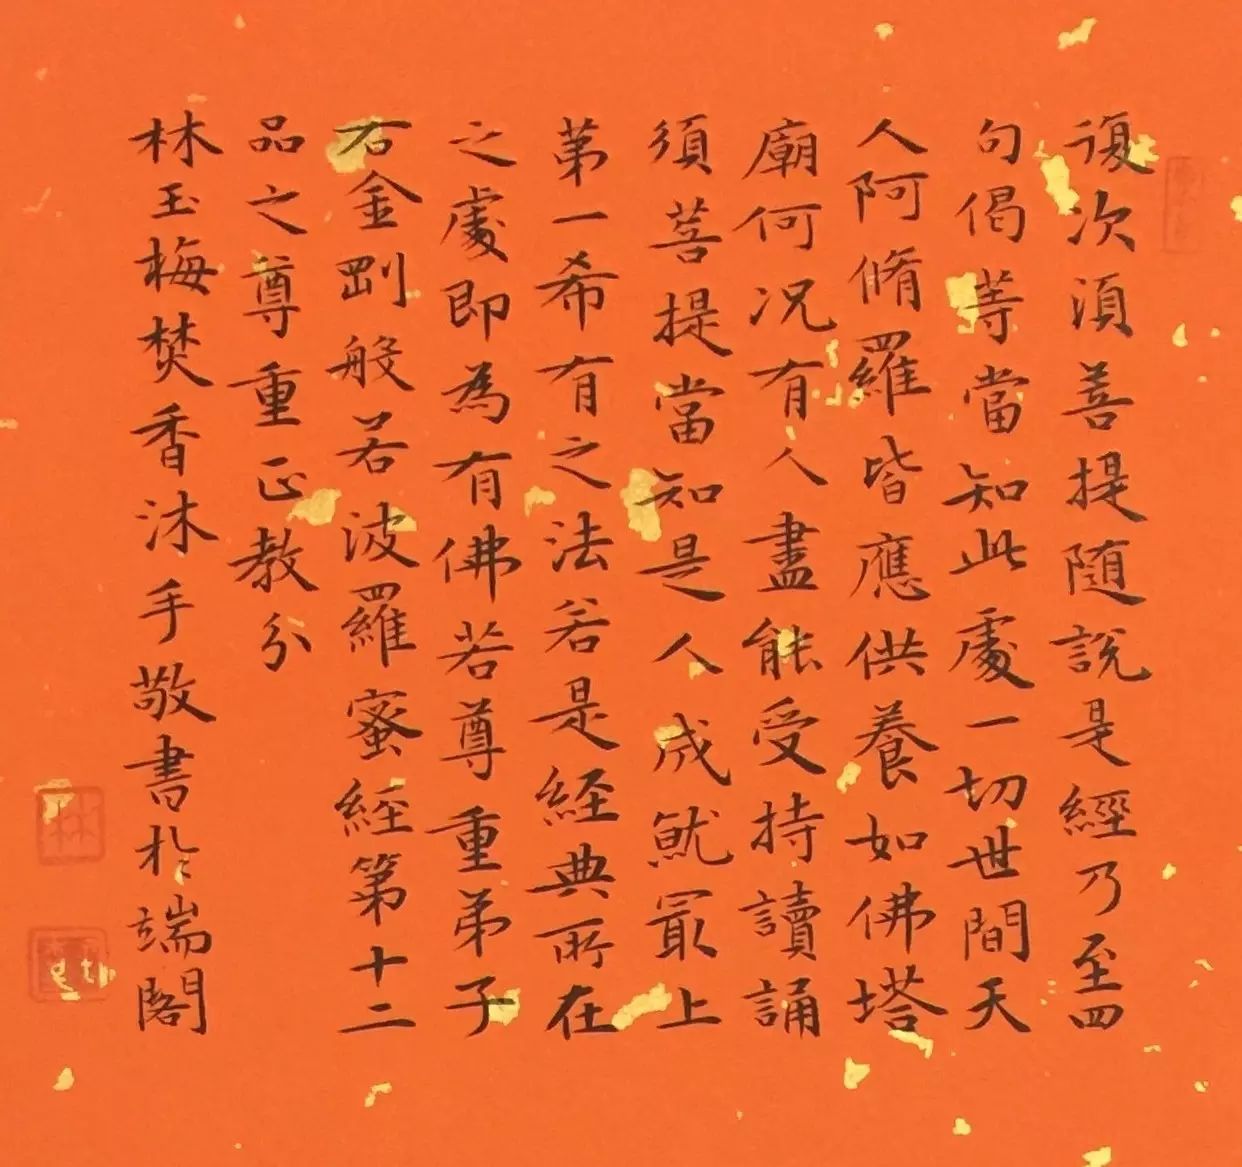 復次須菩提随說是經乃至四
句偈等當知此處一切世間天
人阿脩羅皆應供養如佛塔
廟何况有人盡能受持讀誦
須菩提當知是人成就最上
第一希有之法若是經典所在
之處即為有佛若尊重弟子
右金剛般若波羅蜜經第十二
品之尊重正教分
林玉梅焚香沐手敬書於端閣